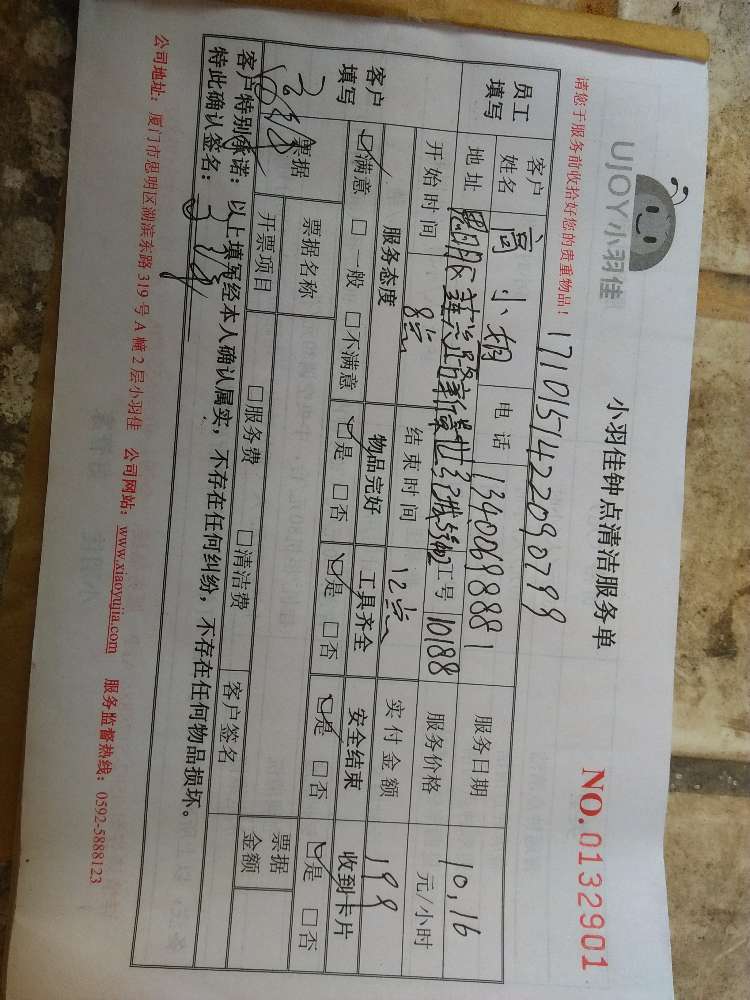 UJOY小羽佳
小羽佳钟点清洁服务单
NO.0132901
请您于服务前收拾好您的贵重物品！
1710151422090799
员工填写
客户姓名 高小 电话 13400698881 服务日期 10.16
地址 思明区莲兴路 世纪 工号 10188 服务价格 元/小时
开始时间 8点 结束时间 12点 实付金额 199
客户填写
服务态度 物品完好 工具齐全 安全结束 收到卡片
☑满意 □一般 □不满意 ☑是 □否 ☑是 □否 ☑是 □否 ☑是 □否
票据 票据名称 客户签名 票据金额
开票项目 □服务费 □清洁费
客户特别承诺：以上填写经本人确认属实，不存在任何纠纷，不存在任何物品损坏。
特此确认签名：
公司地址：厦门市思明区湖滨东路319号A幢2层小羽佳 公司网站：www.xiaoyujia.com 服务监督热线：0592-5888123